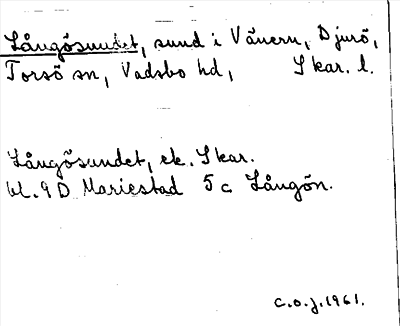 Långösundet, sund i Vänern, Djurö,
Torsö sn, Vadsbo hd, Skar. l.
Långösundet, ek. Skar.
bl. 9 D Mariestad 5 c Långön.
C.O.J. 1961.